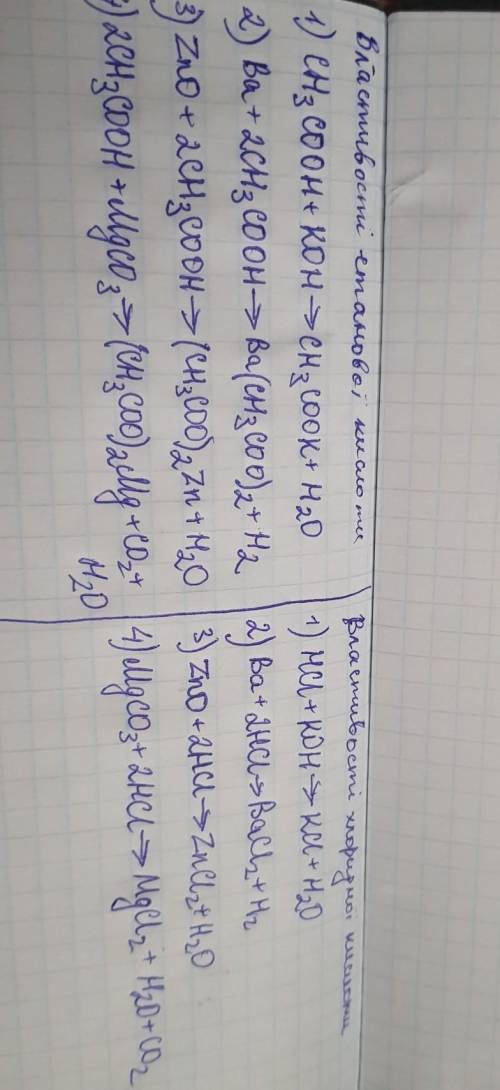 Властивості етанової кислоти
1) CH₃COOH + KOH → CH₃COOK + H₂O
2) Ba + 2CH₃COOH → Ba(CH₃COO)₂ + H₂
3) ZnO + 2CH₃COOH → (CH₃COO)₂Zn + H₂O
4) 2CH₃COOH + MgCO₃ → (CH₃COO)₂Mg + CO₂ +
H₂O
Властивості хлоридної кислоти
1) HCl + KOH → KCl + H₂O
2) Ba + 2HCl → BaCl₂ + H₂
3) ZnO + 2HCl → ZnCl₂ + H₂O
4) MgCO₃ + 2HCl → MgCl₂ + H₂O + CO₂